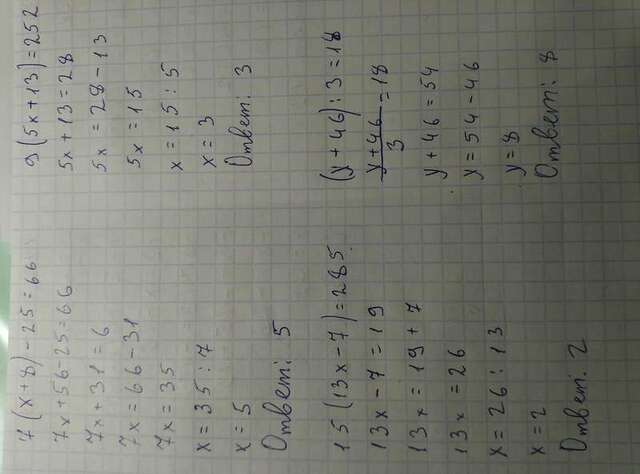 7(x+8)-25=66
7x+56-25=66
7x+31=6
7x=66-31
7x=35
x=35:7
x=5
Ответ: 5
9(5x+13)=252
5x+13=28
5x=28-13
5x=15
x=15:5
x=3
Ответ: 3
15(13x-7)=285
13x-7=19
13x=19+7
13x=26
x=26:13
x=2
Ответ: 2
(y+46):3=18
y+46/3=18
y+46=54
y=54-46
y=8
Ответ: 8